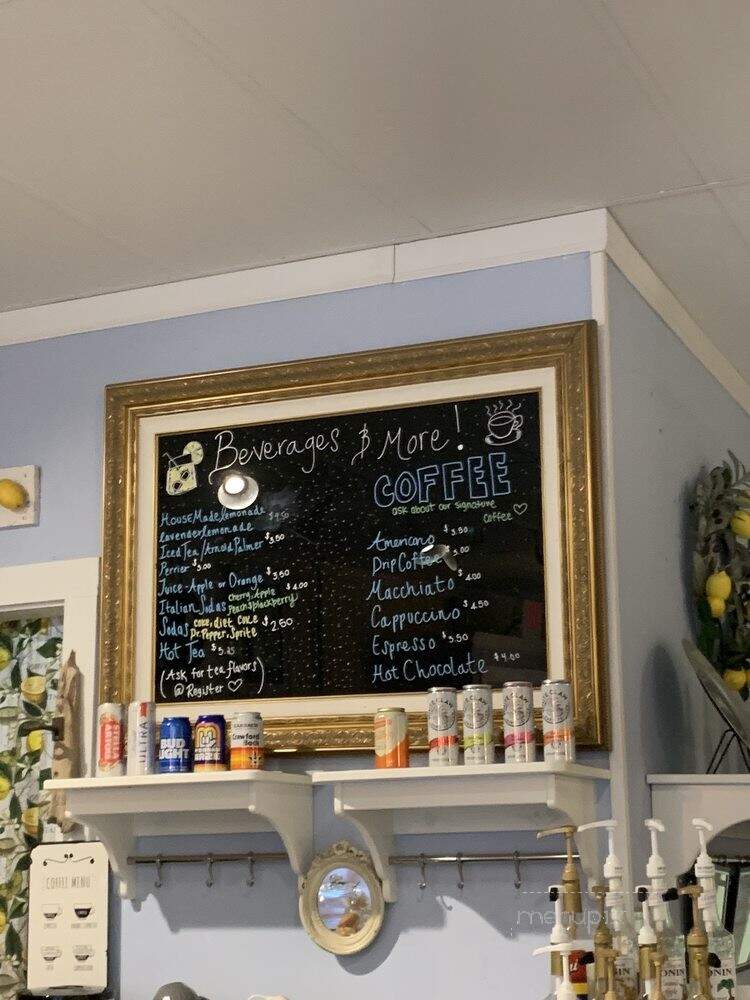 Beverages & More!
HOUSE Made lemonade $4.50
lavender lemonade
Iced Tea / Arnold Palmer $3.50
Perrier $3.00
Juice - Apple or Orange $3.50
Italian Sodas cherry, Apple $4.00
Peach & blackberry
Sodas coke, diet coke $2.50
Dr. Pepper, Sprite
Hot Tea
(Ask for tea flavors)
@ Register
COFFEE
ask about our signature
coffee
Americano $3.50
Drip Coffee 3.00
Macchiato $4.00
Cappuccino $4.50
Espresso $3.50
Hot Chocolate $4.00
STELLA
ARTOIS
ULTRA
BUD
LIGHT
Crawford
Bock
COFFEE MENU
menupix
MONIN